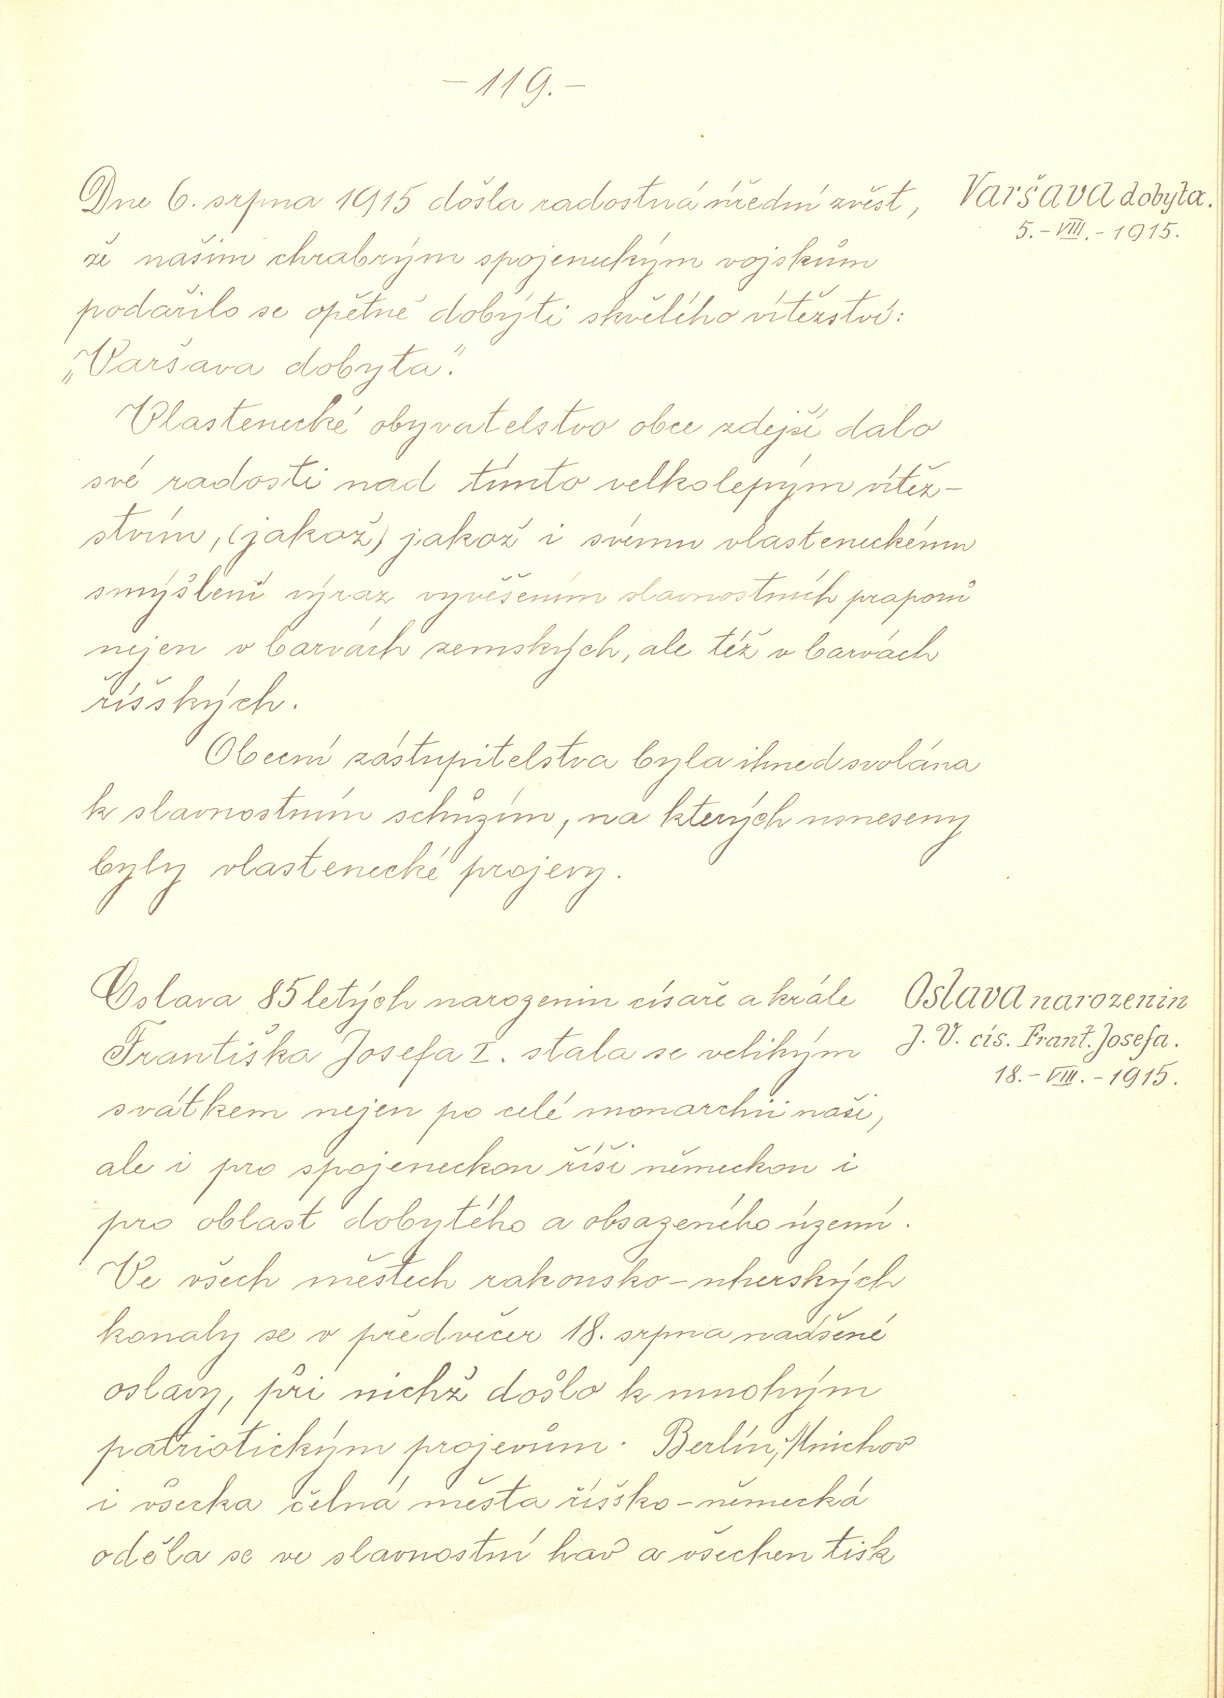 – 119. –
Dne 6. srpna 1915 došla radostná úřední zvěst,
Varšava dobyta.
5. – VIII. – 1915.
že našim chrabrým spojeneckým vojskům
podařilo se opětně dobýti skvělého vítězství:
„Varšava dobyta“.
Vlastenecké obyvatelstvo obce zdejší dalo
své radosti nad tímto velkolepým vítěz-
stvím, (jakož) jakož i svému vlasteneckému
smýšlení výraz vyvěšením slavnostních praporů
nejen v barvách zemských, ale též v barvách
říšských.
Obecní zástupitelstva byla ihned svolána
k slavnostním schůzím, na kterých usneseny
byly vlastenecké projevy.
Oslava 85letých narozenin císaře a krále
Oslava narozenin
J. V. cís. Frant. Josefa.
18. – VIII. – 1915.
Františka Josefa I. stala se velikým
svátkem nejen po celé monarchii naši,
ale i pro spojeneckou říši německou i
pro oblast dobytého a obsazeného území.
Ve všech městech rakousko-uherských
konaly se v předvečer 18. srpna nadšené
oslavy, při nichž došlo k mnohým
patriotickým projevům. Berlín, Mnichov
i všecka čelná města říšsko-německá
oděla se ve slavnostní háv a všechen tisk